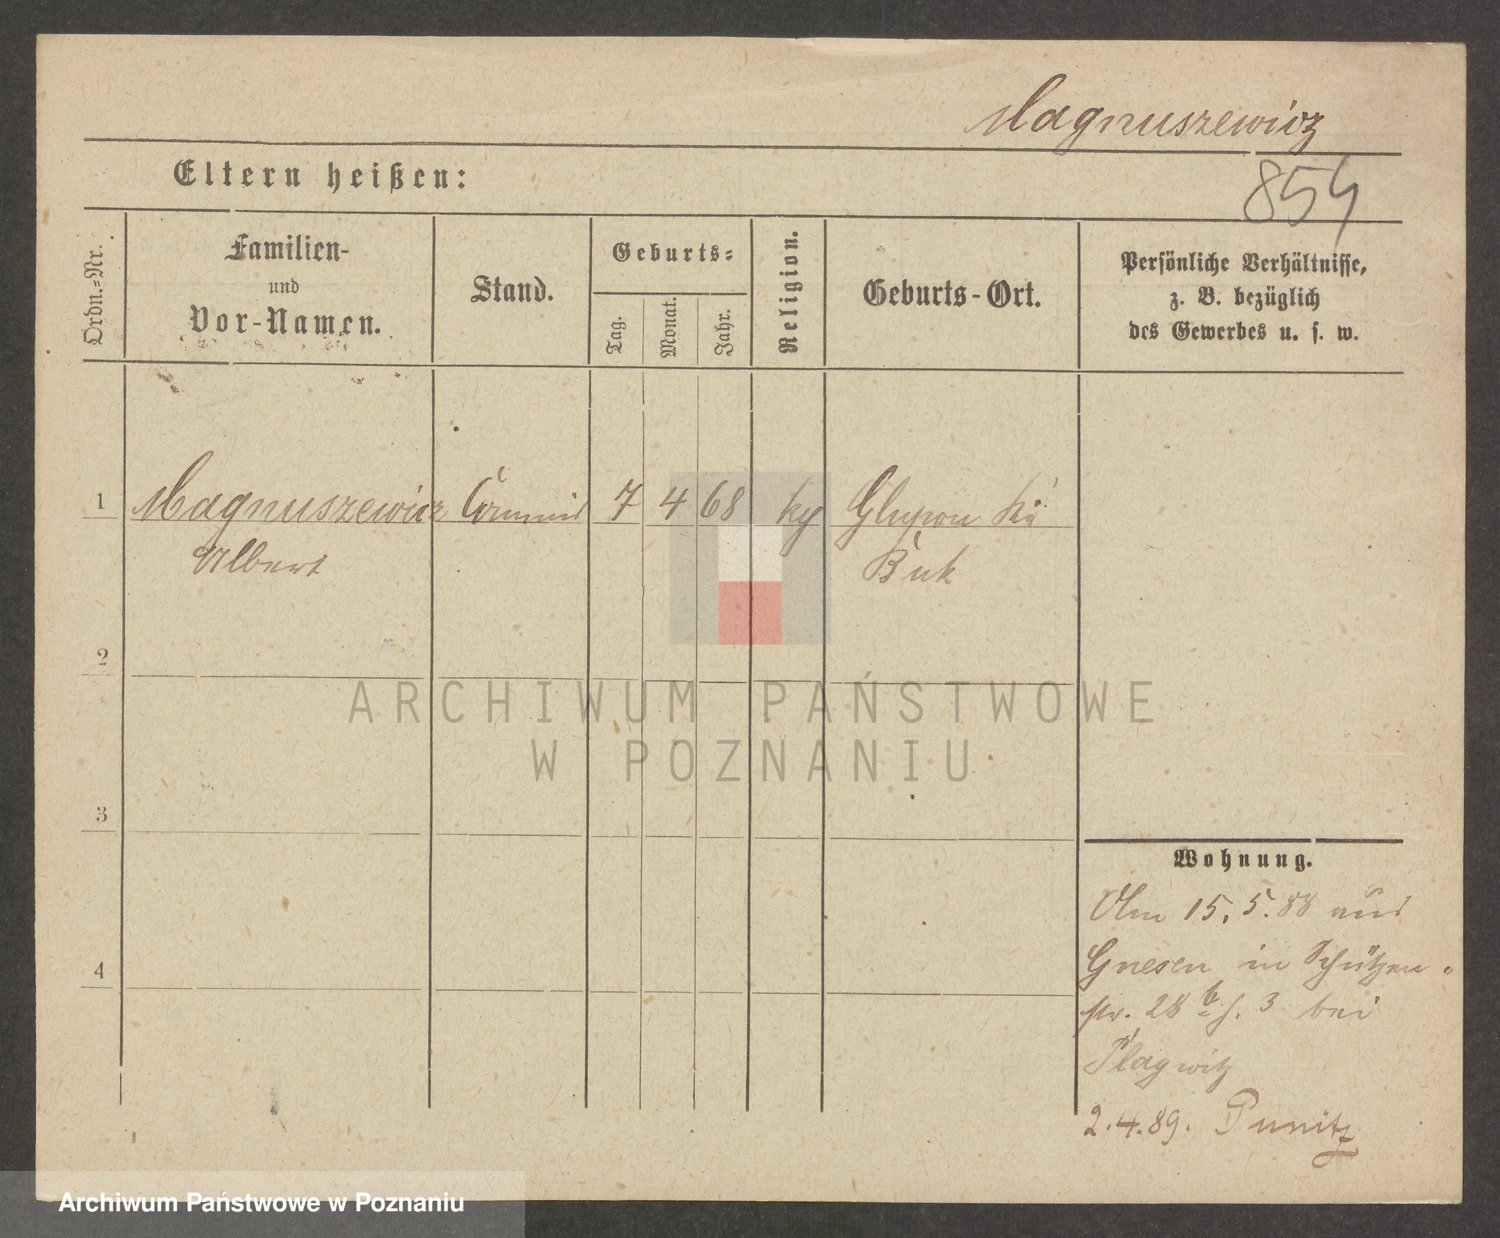 Magnuszewicz
854
Eltern heißen:
Ordn.-Nr.
Familien-
und
Vor-Namen.
Stand.
Geburts-
Tag.
Monat.
Jahr.
Religion.
Geburts-Ort.
Persönliche Verhältnisse,
z. B. bezüglich
des Gewerbes u. s. w.
1 Magnuszewicz Commis 7 4 68 Glupon
Albert Buk
2
3
4
Wohnung.
15.5.88 aus
Gnesen in Schützen-
str. 28 b 3 bei
Plagwitz
2.4.89. Punitz
ARCHIWUM PAŃSTWOWE
W POZNANIU
Archiwum Państwowe w Poznaniu